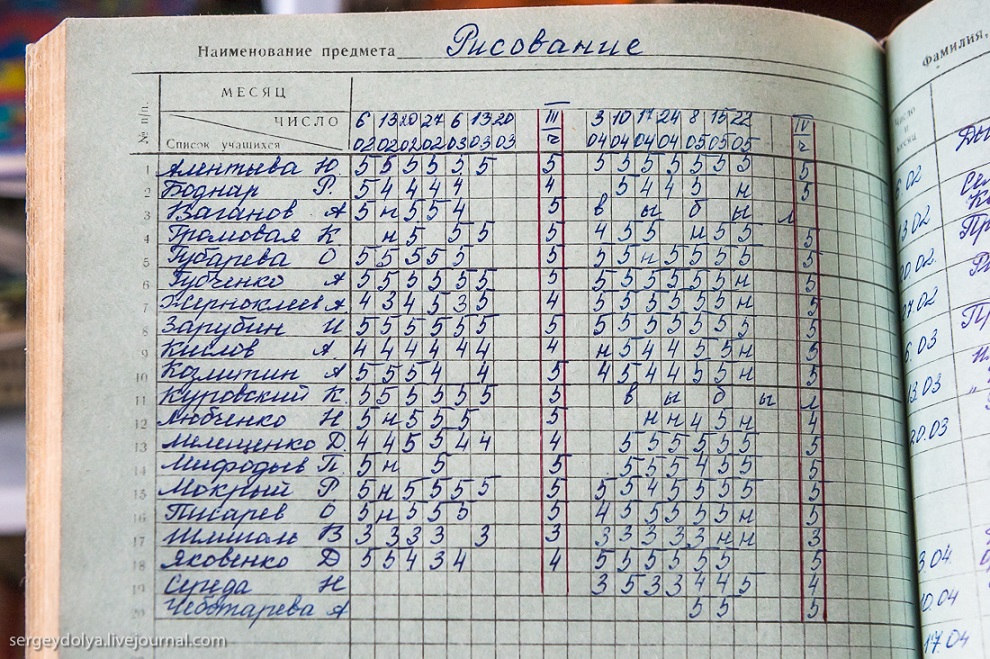 Наименование предмета Рисование
Фамилия,
МЕСЯЦ
№№ п/п
ЧИСЛО
6 13 20 27 6 13 20 III 3 10 17 24 8 15 22 IV
Список учащихся 02 02 02 02 03 03 03 ч 04 04 04 04 05 05 05 ч
1 Алентьева Ю. 5 5 5 5 5 5 5 5 5 5 5 5 5 5 5
2 Боднар Р. 5 4 4 4 4 4 5 4 4 5 н 5
3 Ваганов А 5 н 5 5 4 5 в ы б ы л
4 Громовая К. н 5 5 5 5 4 5 5 н 5 5 5
5 Губарева О 5 5 5 5 5 5 5 5 н 5 5 5 5 5
6 Губченко А 5 5 5 5 5 5 5 5 5 5 5 5 5 н 5
7 Жерноклеев А 4 3 4 5 3 5 4 5 5 5 5 5 5 н 5
8 Зарубин И 5 5 5 5 5 5 5 5 5 5 5 5 5 5 5
9 Кислов А 4 4 4 4 4 4 4 н 5 4 4 5 5 н 5
10 Калитин А 5 5 5 4 4 5 4 5 4 4 5 5 н 5
11 Куровский К. 5 5 5 5 5 5 5 в ы б ы л
12 Любченко Н 5 н 5 5 5 5 н н 4 5 н 4
13 Мелещенко Д. 4 4 5 5 4 4 4 5 5 5 5 5 5 5
14 Мифодьев П. 5 н 5 5 5 5 5 4 5 5 5
15 Мокрый Р 5 н 5 5 5 5 5 5 5 4 5 5 5 5 5
16 Писарев О 5 н 5 5 5 5 4 5 5 5 5 5 н 5
17 Шмигаль В 3 3 3 3 3 3 3 3 3 3 3 н н 3
18 Яковенко Д 5 5 4 3 4 4 5 5 5 5 5 5 5
19 Середа Н 3 5 3 3 4 4 5 4
20 Чеботарева А 5 5 5
13.03
20.03
3.04.
10.04
17.04
sergeydolya.livejournal.com